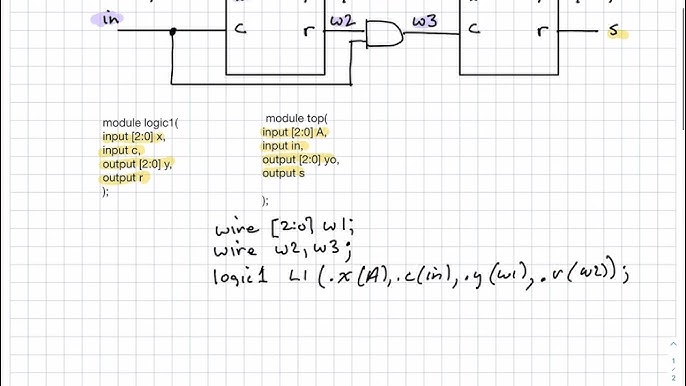 in
c
r
w2
w3
c
r
s
module logic1(
input [2:0] x,
input c,
output [2:0] y,
output r
);
module top(
input [2:0] A,
input in,
output [2:0] yo,
output s
);
wire [2:0] w1;
wire w2, w3;
logic1 L1 (.x(A), .c(in), .y(w1), .r(w2));
1
/
2